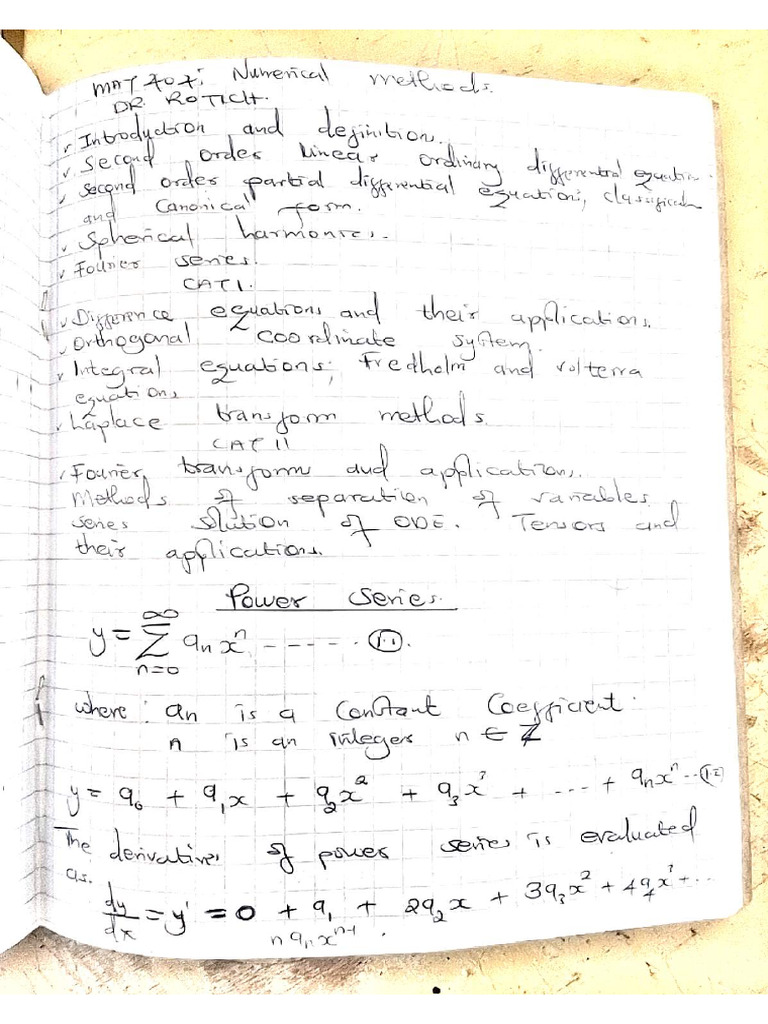 MAT 707: Numerical methods.
DR. ROTICH.
✓ Introduction and definition.
✓ Second order linear ordinary differential equation.
✓ Second order partial differential equations, classification
and Canonical form.
✓ Spherical harmonics.
✓ Fourier series.
CAT I.
✓ Difference equations and their applications.
✓ Orthogonal coordinate system.
✓ Integral equations; Fredholm and volterra
equations
✓ Laplace transform methods.
CAT II
✓ Fourier transforms and applications.
Methods of separation of variables
series solution of ODE. Tensors and
their applications.
Power series.
y = ∑_{n=0}^{∞} a_n x^n ------ (1.1).
where: a_n is a constant Coefficient.
n is an integer n ∈ Z
y = a_0 + a_1 x + a_2 x^2 + a_3 x^3 + ... + a_n x^n ...(1.2)
The derivatives of power series is evaluated
as.
dy/dx = y' = 0 + a_1 + 2a_2 x + 3a_3 x^2 + 4a_4 x^3 + ...
n a_n x^{n-1}.